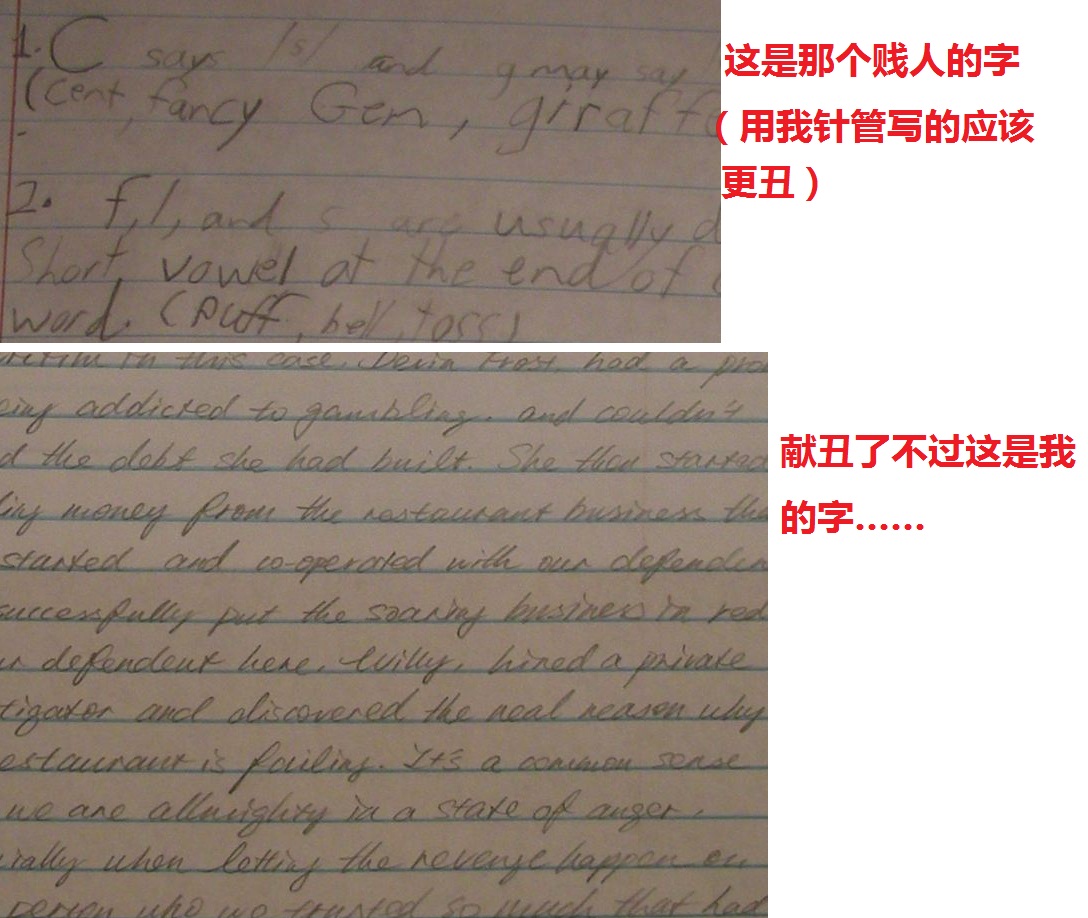 1. C says /s/ and g may say
(Cent, fancy Gem, giraff
2. f, l, and s are usually d
Short vowel at the end of
word. (puff, hell, toss)
这是那个贱人的字
(用我针管写的应该
更丑)
in this case, Devin Frost had a pro
eing addicted to gambling. and couldn't
d the debt she had built. She then started
ling money from the restaurant business tha
started and co-operated with our defenden
successfully put the soaring business in red
ur defendent here, Willy, hired a private
tigator and discovered the real reason why
estaurant is failing. It's a common sense
we are allmighty in a state of anger,
cially when letting the revenge happen on
person who we trusted so much that had
献丑了不过这是我
的字……